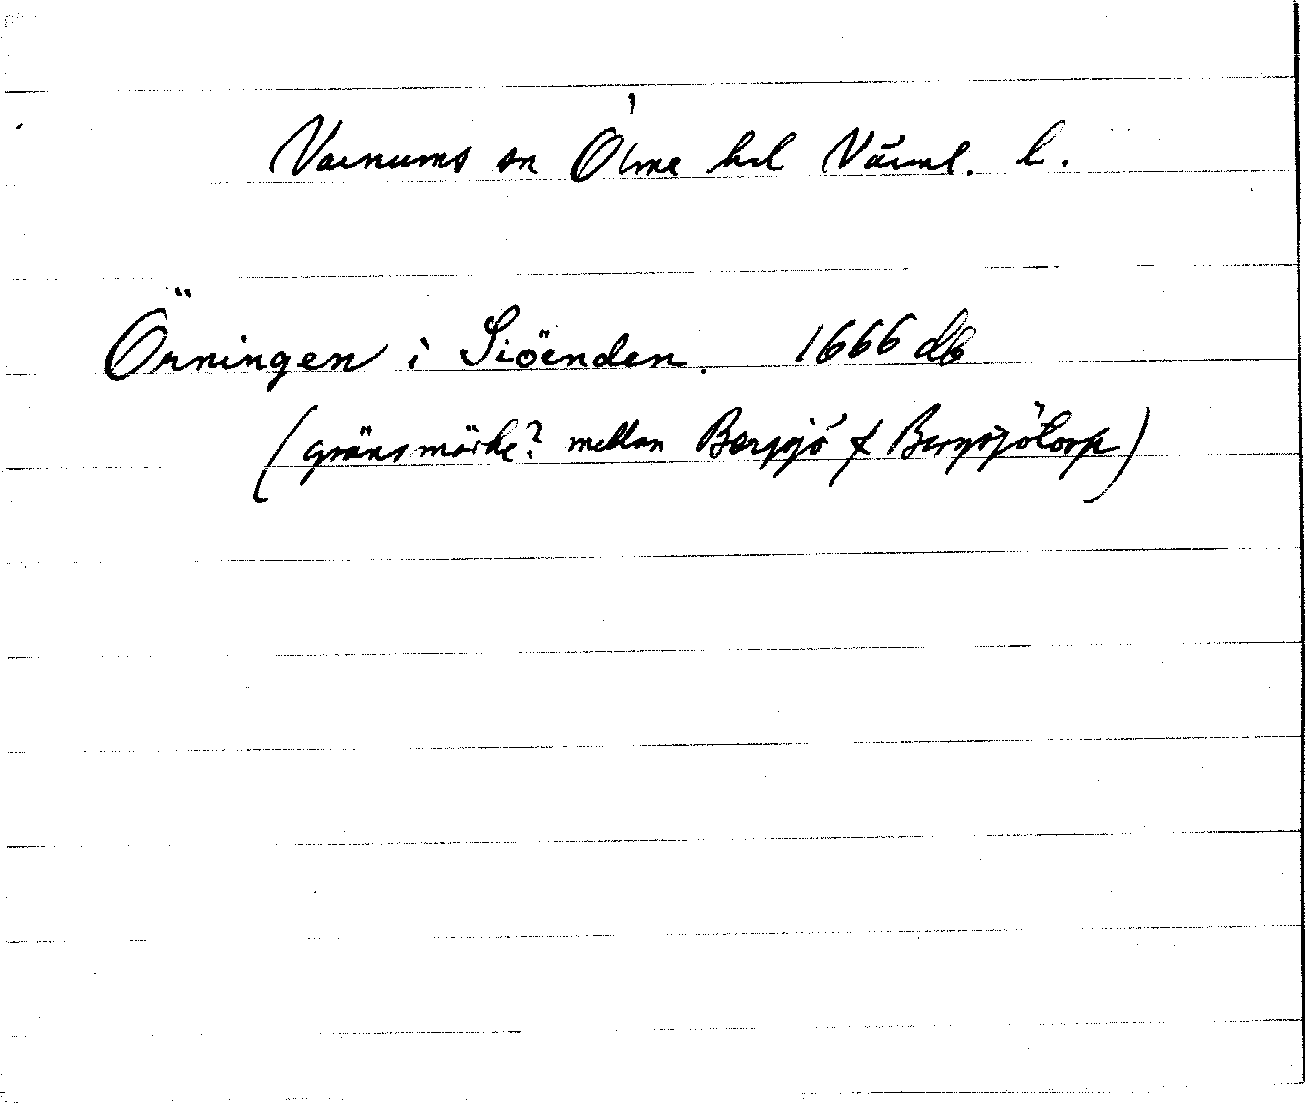 Varnums sn Ölme hd Värml. l.
Örningen i Siöenden. 1666 db
(gränsmärke? mellan Bergsjö & Bergsjötorp)